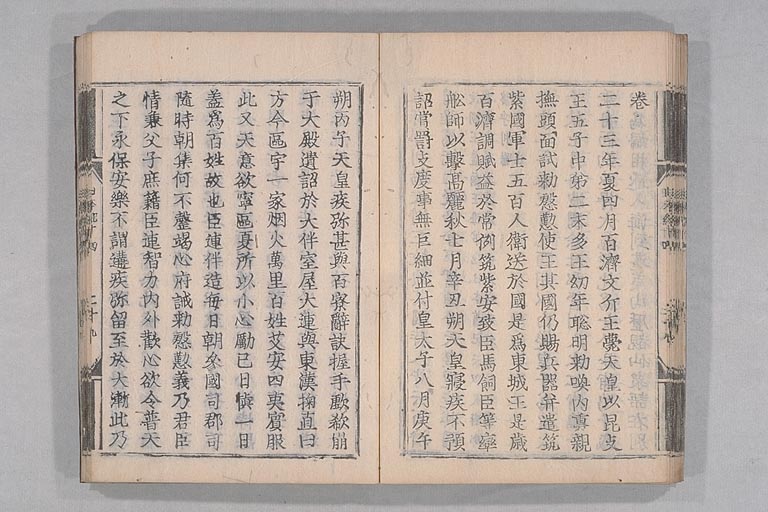 卷
二十三年夏四月百濟文斤王薨天皇以昆支
王五子中第二末多王幼年聰明勅喚內裏親
撫頭面誡勅慇懃使王其國仍賜兵器幷遣筑
紫國軍士五百人衛送於國是爲東城王是歲
百濟調賦益於常例筑紫安致臣馬飼臣等率
舩師以擊高麗秋七月辛丑朔天皇寢疾不預
詔賞罰支度事無巨細並付皇太子八月庚午
朔丙子天皇疾弥甚與百寮辭訣握手歔欷崩
于大殿遺詔於大伴室屋大連與東漢掬直曰
方今區宇一家烟火萬里百姓艾安四夷賓服
此又天意欲寧區夏所以小心勵己日愼一日
盖爲百姓故也臣連伴造每日朝參國司郡司
隨時朝集何不罄竭心府誡勅慇懃義乃君臣
情兼父子庶藉臣連智力內外歡心欲令普天
之下永保安樂不謂遘疾弥留至於大漸此乃